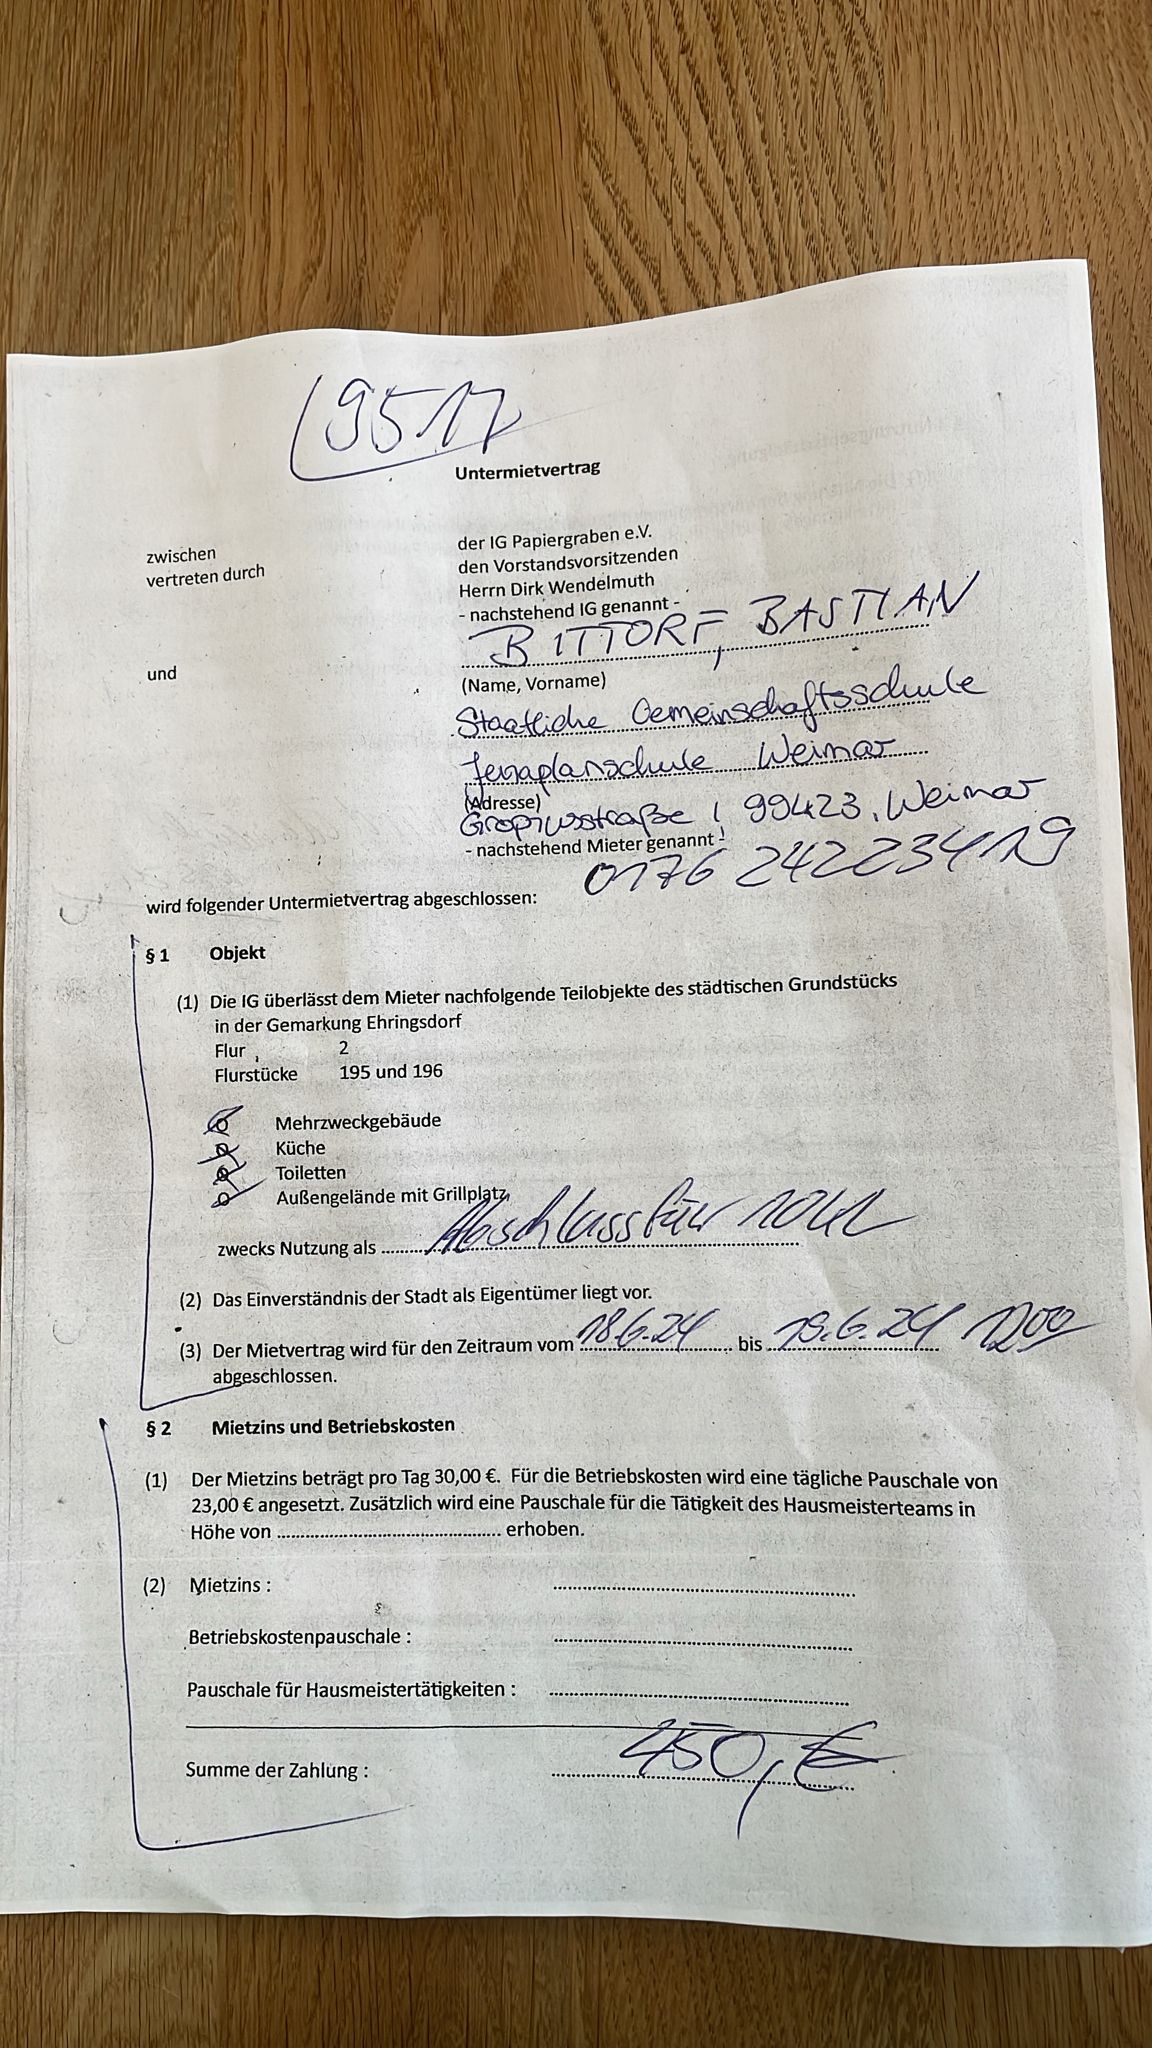 9517
Untermietvertrag
zwischen der IG Papiergraben e.V.
vertreten durch den Vorstandsvorsitzenden
Herrn Dirk Wendelmuth
- nachstehend IG genannt -
und BITTORF, BASTIAN
(Name, Vorname)
Staatliche Gemeinschaftsschule
Jenaplanschule Weimar
(Adresse)
Gropiusstraße 1 99423, Weimar
- nachstehend Mieter genannt -
0176 24223419
wird folgender Untermietvertrag abgeschlossen:
§ 1 Objekt
(1) Die IG überlässt dem Mieter nachfolgende Teilobjekte des städtischen Grundstücks
in der Gemarkung Ehringsdorf
Flur 2
Flurstücke 195 und 196
Mehrzweckgebäude
Küche
Toiletten
Außengelände mit Grillplatz,
zwecks Nutzung als Abschlussfeier
(2) Das Einverständnis der Stadt als Eigentümer liegt vor.
(3) Der Mietvertrag wird für den Zeitraum vom 18.6.24 bis 19.6.24 1200
abgeschlossen.
§ 2 Mietzins und Betriebskosten
(1) Der Mietzins beträgt pro Tag 30,00 €. Für die Betriebskosten wird eine tägliche Pauschale von
23,00 € angesetzt. Zusätzlich wird eine Pauschale für die Tätigkeit des Hausmeisterteams in
Höhe von ........................................ erhoben.
(2) Mietzins :
Betriebskostenpauschale :
Pauschale für Hausmeistertätigkeiten :
Summe der Zahlung : 450,€